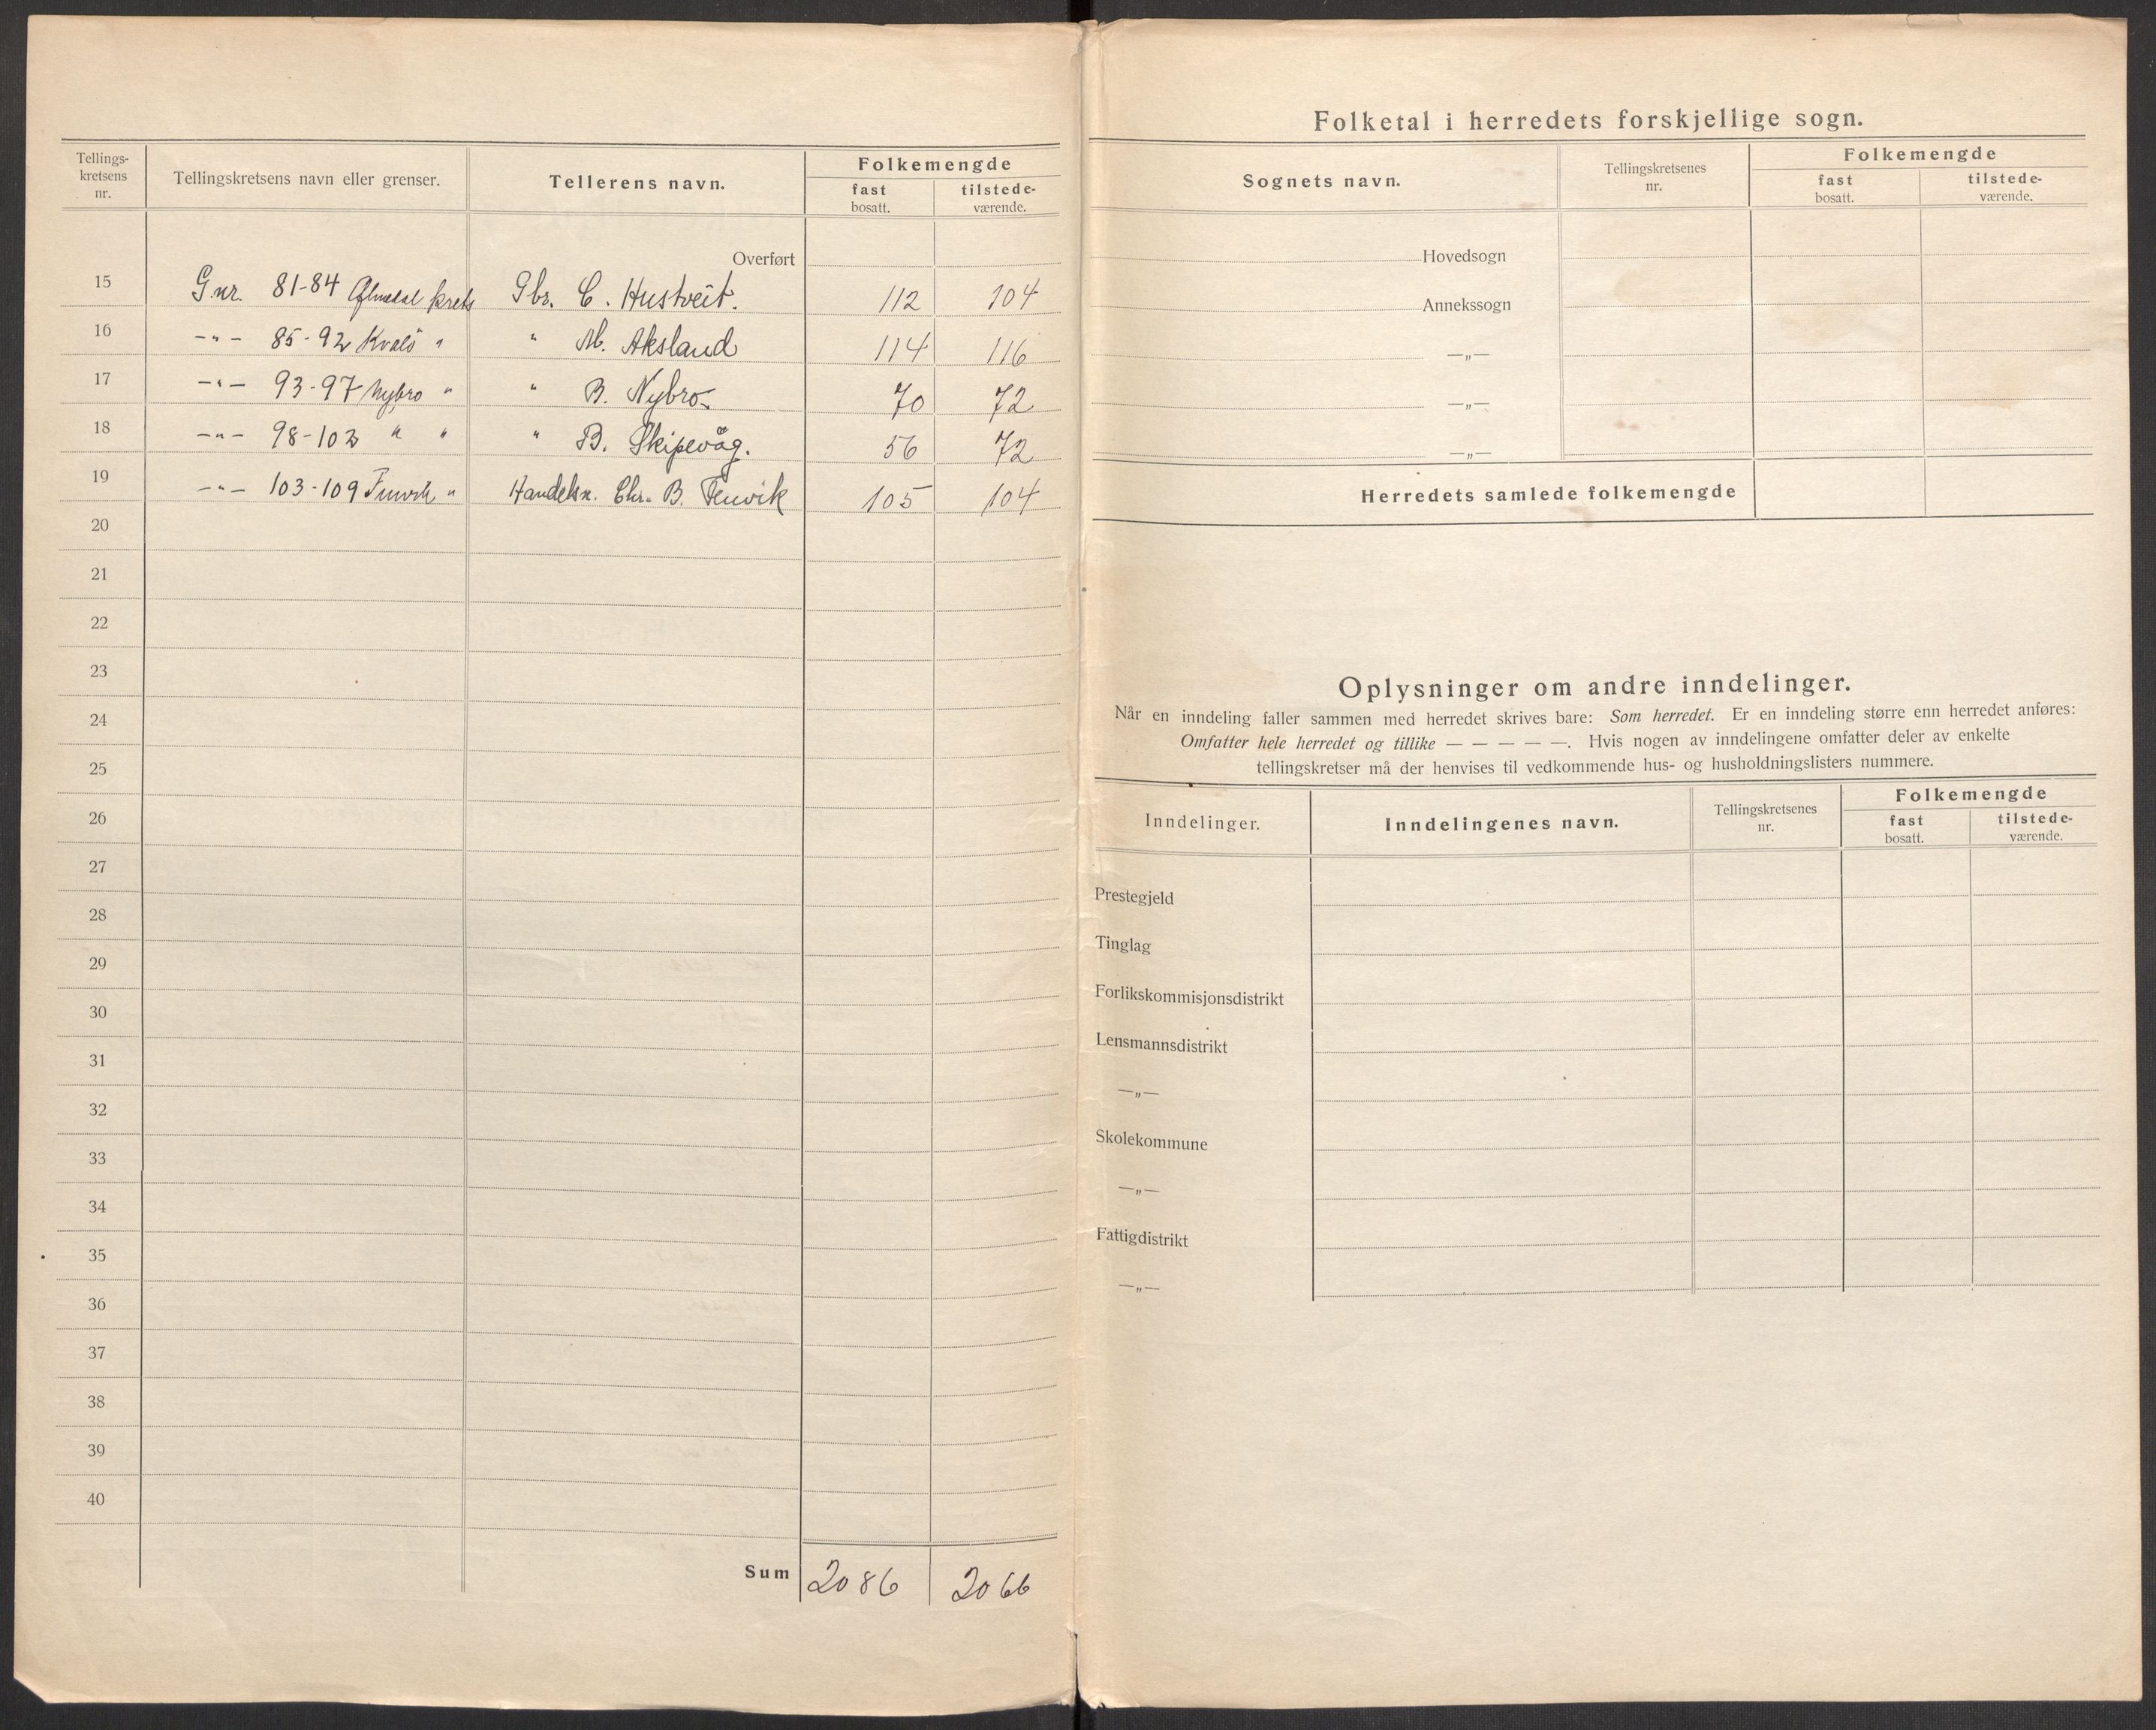 Tellings-
kretsens
nr.
Tellingskretsens navn eller grenser.
Tellerens navn.
Folkemengde
fast
bosatt.
tilstede-
værende.
Overført
15 G.nr. 81-84 krets Gbr. C. Hustveit. 112 104
16 -"- 85-92 Kvalø " " M. Aksland 114 116
17 -"- 93-97 Nybro " " B. Nybro 70 72
18 -"- 98-102 " " " B. Skipevåg. 56 72
19 -"- 103-109 " Handelsm. Chr. B. Fenvik 105 104
20
21
22
23
24
25
26
27
28
29
30
31
32
33
34
35
36
37
38
39
40
Sum 2086 2066
Folketal i herredets forskjellige sogn.
Sognets navn.
Tellingskretsenes
nr.
Folkemengde
fast
bosatt.
tilstede-
værende.
Hovedsogn
Annekssogn
—„—
—„—
—„—
Herredets samlede folkemengde
Oplysninger om andre inndelinger.
Når en inndeling faller sammen med herredet skrives bare: Som herredet. Er en inndeling større enn herredet anføres:
Omfatter hele herredet og tillike — — — — —. Hvis nogen av inndelingene omfatter deler av enkelte
tellingskretser må der henvises til vedkommende hus- og husholdningslisters nummere.
Inndelinger.
Inndelingenes navn.
Tellingskretsenes
nr.
Folkemengde
fast
bosatt.
tilstede-
værende.
Prestegjeld
Tinglag
Forlikskommisjonsdistrikt
Lensmannsdistrikt
—„—
Skolekommune
—„—
Fattigdistrikt
—„—